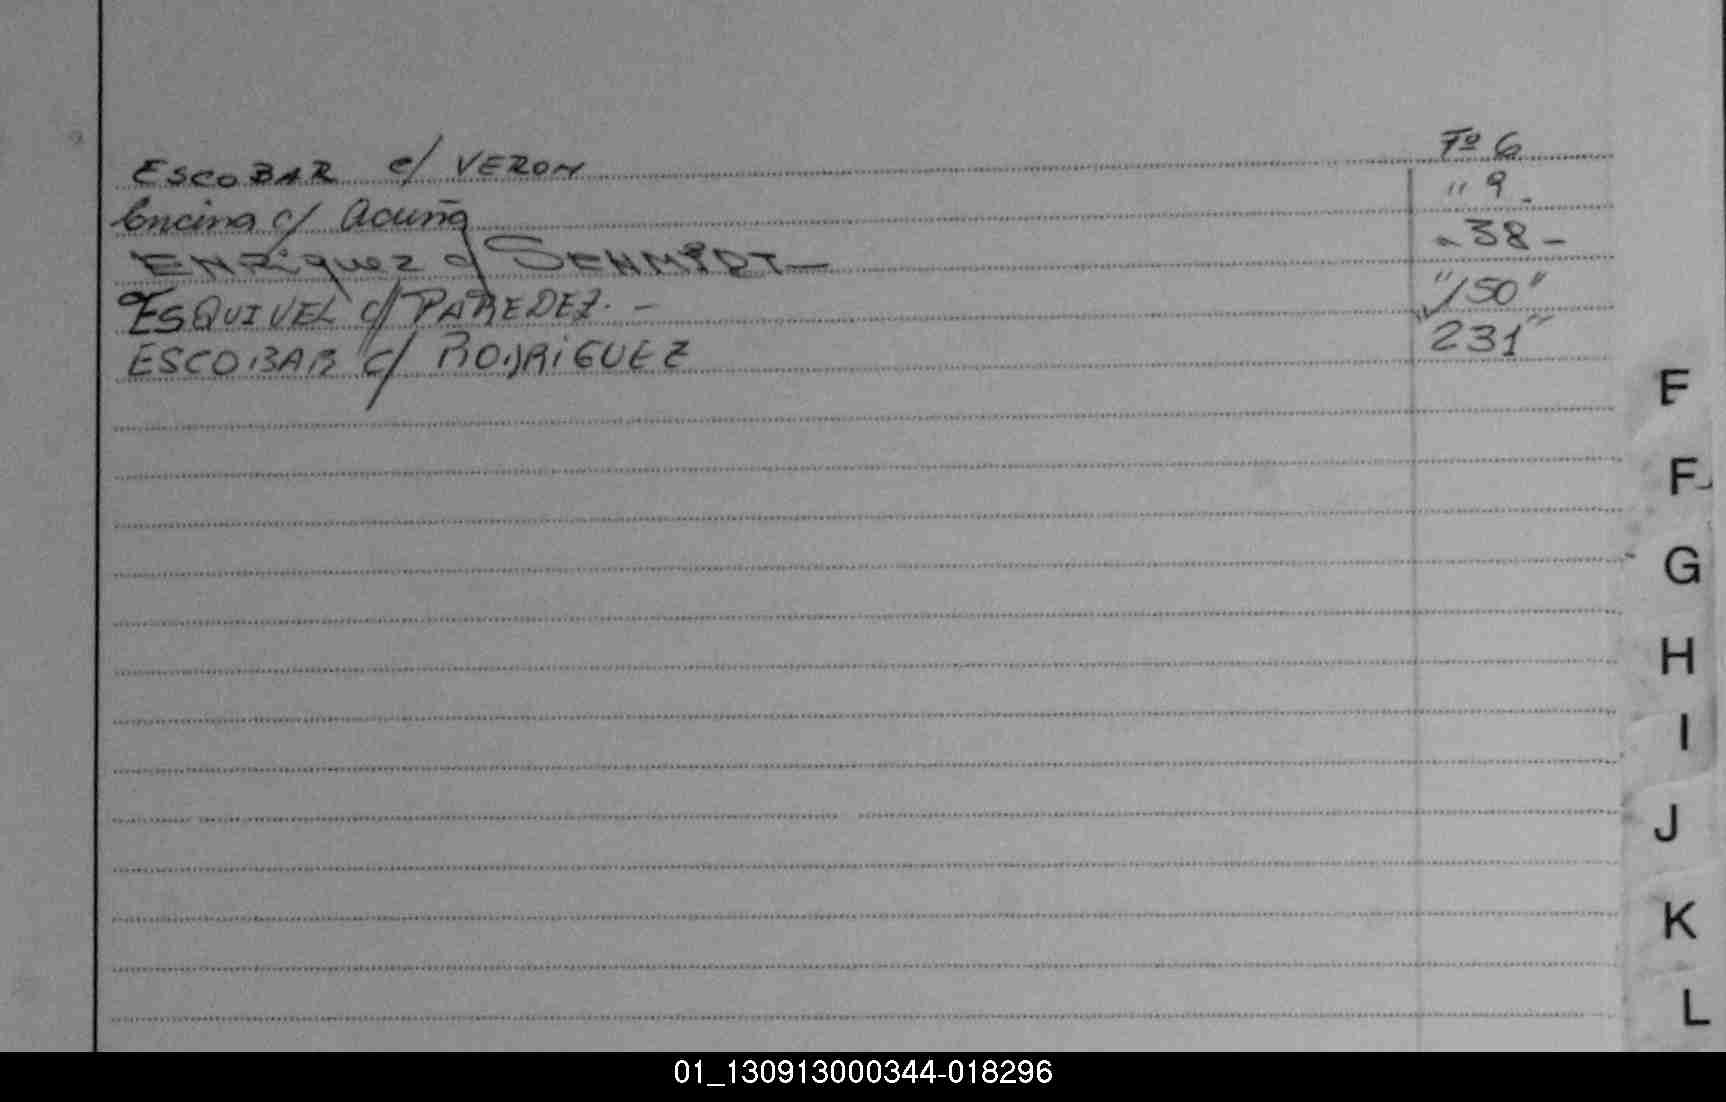 ESCOBAR c/ VERON Fº 6
Encina c/ Acuña " 9.
ENRiquez c/ SCHMIDT - " 38 -
ESQUIVEL c/ PAREDEZ. - " 150 "
ESCOBAR c/ RODRiGUEZ 231 "
E
F
G
H
I
J
K
L
01_130913000344-018296